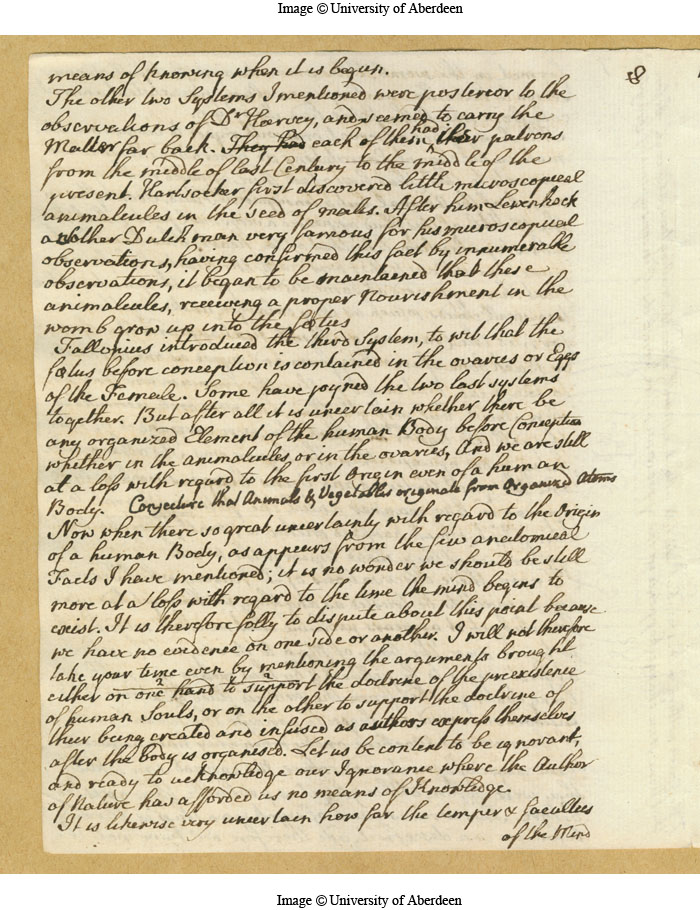 Image © University of Aberdeen
8
means of knowing when it is begun.
The other two Systems I mentioned were posterior to the
observations of Dr Harvey, and seemed to carry the
Matter far back. They had each of them had their patrons
from the middle of last Century to the middle of the
present. Hartsoeker first discovered little microscopical
animalcules in the seed of males. After him Lewenhock
another Dutchman very famous for his microscopical
observations, having confirmed this fact by innumerable
observations, it began to be maintained that these
animalcules, receiving a proper Nourishment in the
womb grow up into the fœtus
Fallopius introduced the third System, to wit that the
fœtus before conception is contained in the ovaries or Eggs
of the Female. Some have joyned the two last systems
together. But after all it is uncertain whether there be
any organized Element of the human Body before Conception
whether in the animalcules, or in the ovaries, And we are still
at a loss with regard to the first Origin even of a human
Body. Conjecture that Animals & Vegetables originate from Organized Atoms
Now when there so great uncertainty with regard to the Origin
of a human Body, as appears from the few anatomical
Facts I have mentioned; it is no wonder we should be still
more at a loss with regard to the time the mind begins to
exist. It is therefore folly to dispute about this point because
we have no evidence on one side or another. I will not therefore
take your time even by mentioning the arguments brought
either on one hand to support the doctrine of the preexistence
of human Souls, or on the other to support the doctrine of
their being created and infused as authors express themselves
after the Body is organised. Let us be content to be ignorant,
and ready to acknowledge our Ignorance where the Author
of Nature has afforded us no means of Knowledge.
It is likewise very uncertain how far the temper & faculties
of the Mind
Image © University of Aberdeen